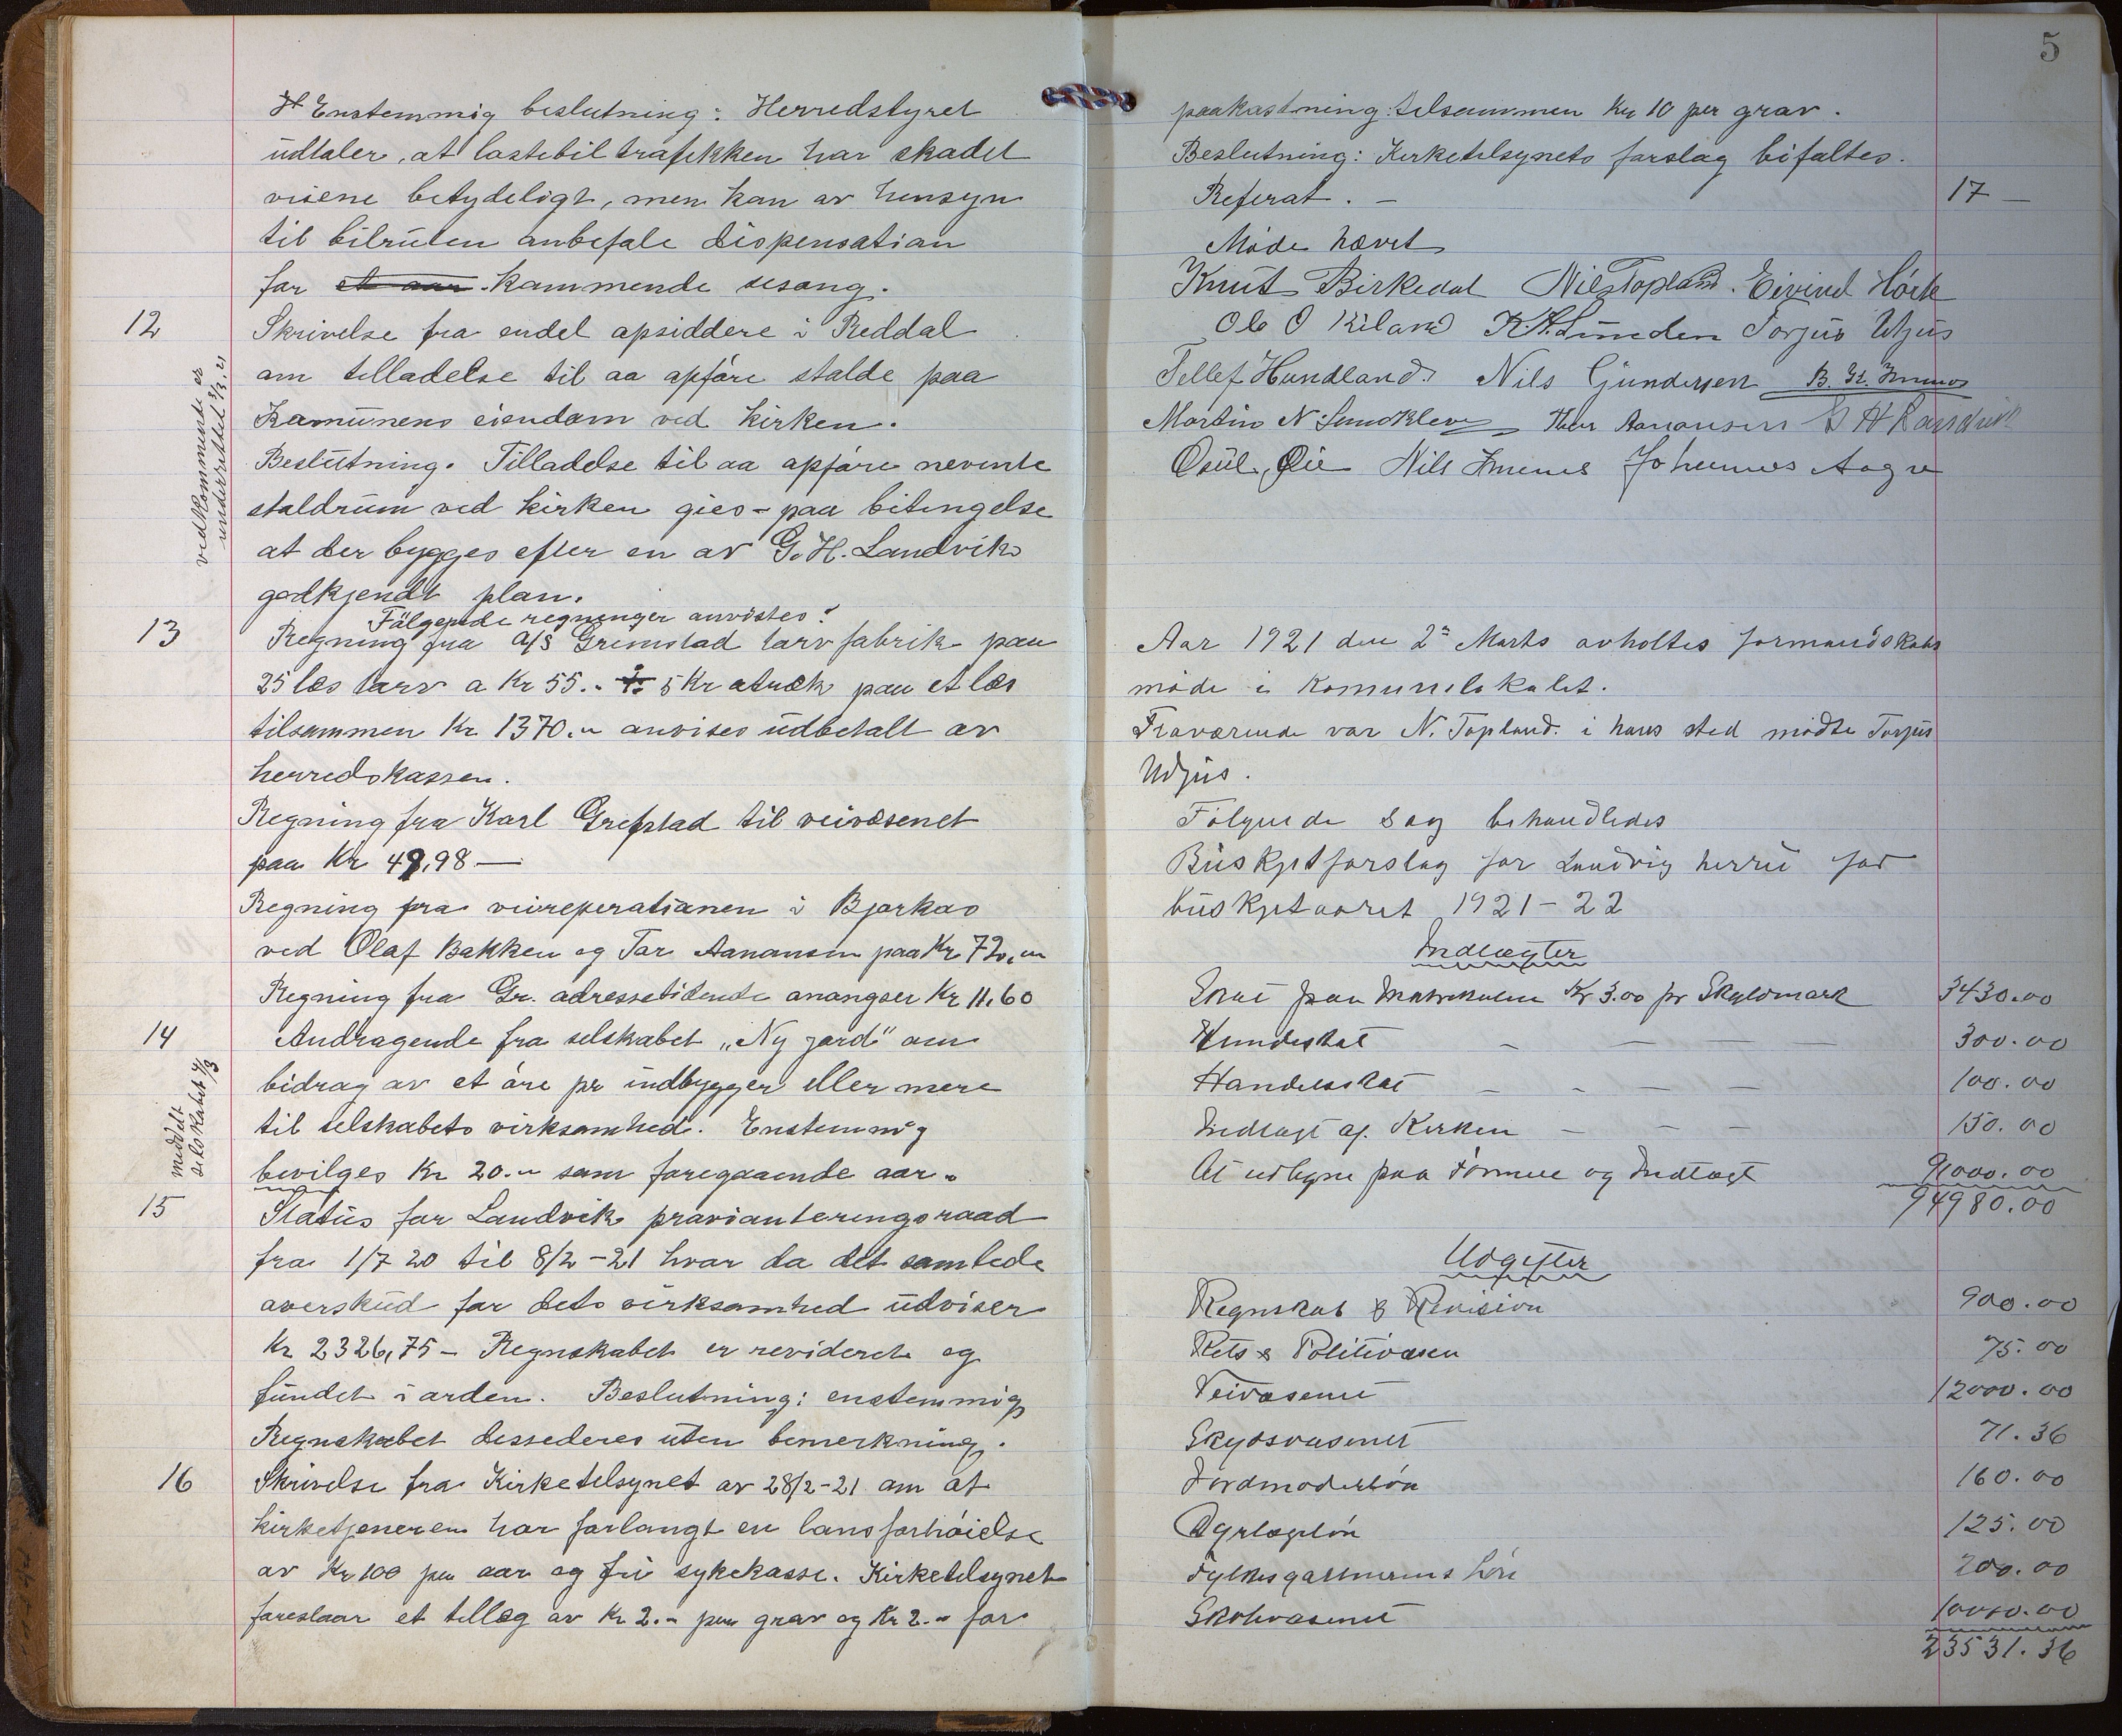 Enstemmig beslutning: Herredstyret
udtaler, at lastebiltrafikken har skadet
veiene betydeligt, men kan av hensyn
til bilruten anbefale dispensation
for et aar kommende sesong.
12
Skrivelse fra endel opsiddere i Reddal
om telladelse til aa opføre stalde paa
Komunens eiendom ved kirken.
Beslutning. Tilladelse til aa opføre nevnte
staldrum ved kirken gies - paa betingelse
at der bygges efter en av G. H. Landvik
godkjendt plan.
vedkommende er
underrettet 3/3.21
13
Følgende regninger anvistes:
Regning fra A/S Grimstad tarvfabrik paa
25 læs tarv a Kr 55.- 5 Kr atræk paa et læs
tilsammen Kr 1370.- anvises udbetalt av
herredskassen.
Regning fra Karl Grefstad til veivæsenet
paa Kr 49,98 —
Regning fra veireperationen i Bjorkas
ved Olaf Bakken og Tor Aanonsen paa Kr 72.-
Regning fra Gr. adressetidende anangser Kr 11.60
14
Andragende fra selskabet „Ny jord" om
bidrag av et øre pr indbygger eller mere
til selskabets virksomhed. Enstemmig
bevilges Kr 20.- som foregaaende aar.
meddelt
selskabet 4/3
15
Status for Landvik provianteringsraad
fra 1/7 20 til 8/2-21 hvor da det samlede
overskud for dets virksomhed udviser
Kr 2326,75 - Regnskabet er revideret og
fundet i orden. Beslutning: enstemmig
Regnskabet dessederes uten bemerkning.
16
Skrivelse fra Kirketelsynet av 28/2-21 om at
kirketjeneren har forlangt en lønsforhøielse
av Kr 100 per aar og fri sykekasse. Kirketelsynet
foreslaar et tellæg av Kr 2.- per grav og Kr 2.- for
5
paakastning telsammen Kr 10 per grav.
Beslutning: Kirketelsynets forslag bifaltes.
Referat. —
17 —
Møde hævet
Knut Birkedal Nils Topland. Eivind Hørte
Ole O Kiland K. A. Lunden Torjus Utjus
Tellef Hundland. Nils Gundersen B. Gt. Imenes
Martin N. Landkleve Thor Aanonsen G H Landvik
Osul Øie Nils Imenes Johannes Aagre
Aar 1921 den 2n Marts avholtes formandskabs
møde i Komunelokalet.
Fraværende var N. Topland. i hans sted mødte Torjus
Udjus.
Følgende sag behandledes
Buskjetforslag for Landvig herred for
buskjetaaret 1921-22
Indtægter
Skat paa Matrikulen Kr 3.00 pr Skyldmark 3430.00
Hundeskat — — — — 300.00
Handelsskat — — — — 100.00
Indtægt af Kirken — — — 150.00
At udligne paa Formue og Indtægt 91000.00
94980.00
Udgifter
Regnskab & Revision 900.00
Rets & Politivæsen 75.00
Veivæsenet 12000.00
Skydsvæsenet 71.36
Jordmoderløn 160.00
Dyrlægeløn 125.00
Fylkesgartnerens løn 200.00
Skolevæsenet 10000.00
23531.36